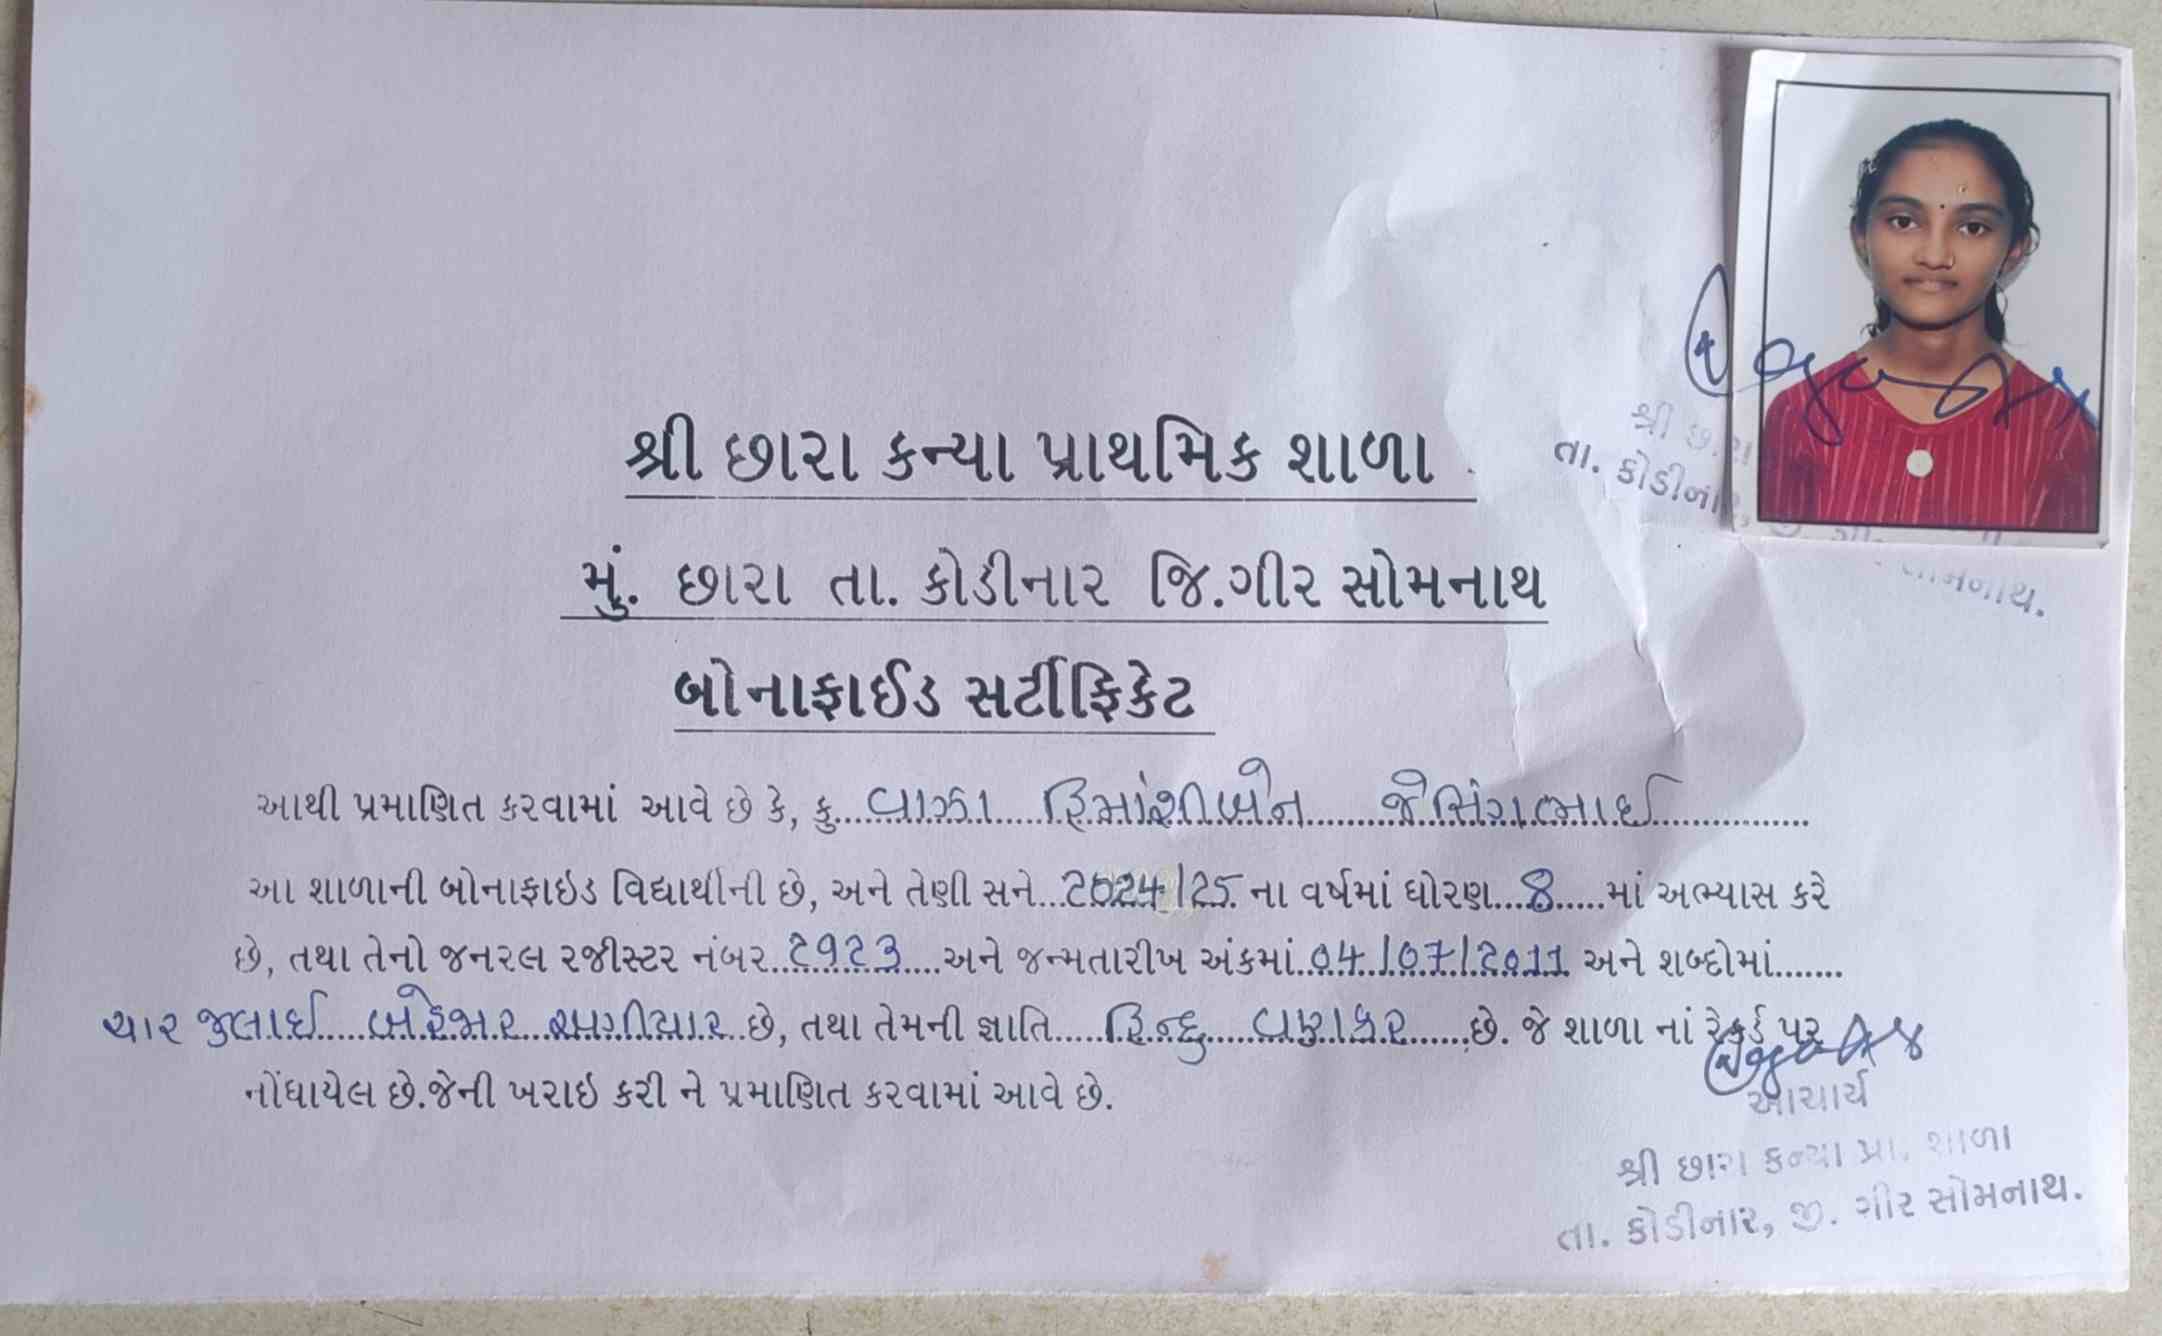 શ્રી છારા કન્યા પ્રાથમિક શાળા
મું. છારા તા. કોડીનાર જિ.ગીર સોમનાથ
બોનાફાઈડ સર્ટીફિકેટ
શ્રી છારા
તા. કોડીનાર, જી. ગીર સોમનાથ.
આથી પ્રમાણિત કરવામાં આવે છે કે, કુ.....વાઝા.....હિમાંશીબેન........જેસિંગભાઈ...............
આ શાળાની બોનાફાઇડ વિદ્યાર્થીની છે, અને તેણી સને...2024/25. ના વર્ષમાં ધોરણ...8.....માં અભ્યાસ કરે
છે, તથા તેનો જનરલ રજીસ્ટર નંબર..૨૧૨૩....અને જન્મતારીખ અંકમાં..04/07/2011 અને શબ્દોમાં.......
ચાર જુલાઈ.....બેહજાર...અગીયાર..છે, તથા તેમની જ્ઞાતિ.....હિન્દુ.....વણકર.......છે. જે શાળા નાં રેકર્ડ પર
નોંધાયેલ છે.જેની ખરાઇ કરી ને પ્રમાણિત કરવામાં આવે છે.
આચાર્ય
શ્રી છારા કન્યા પ્રા. શાળા
તા. કોડીનાર, જી. ગીર સોમનાથ.